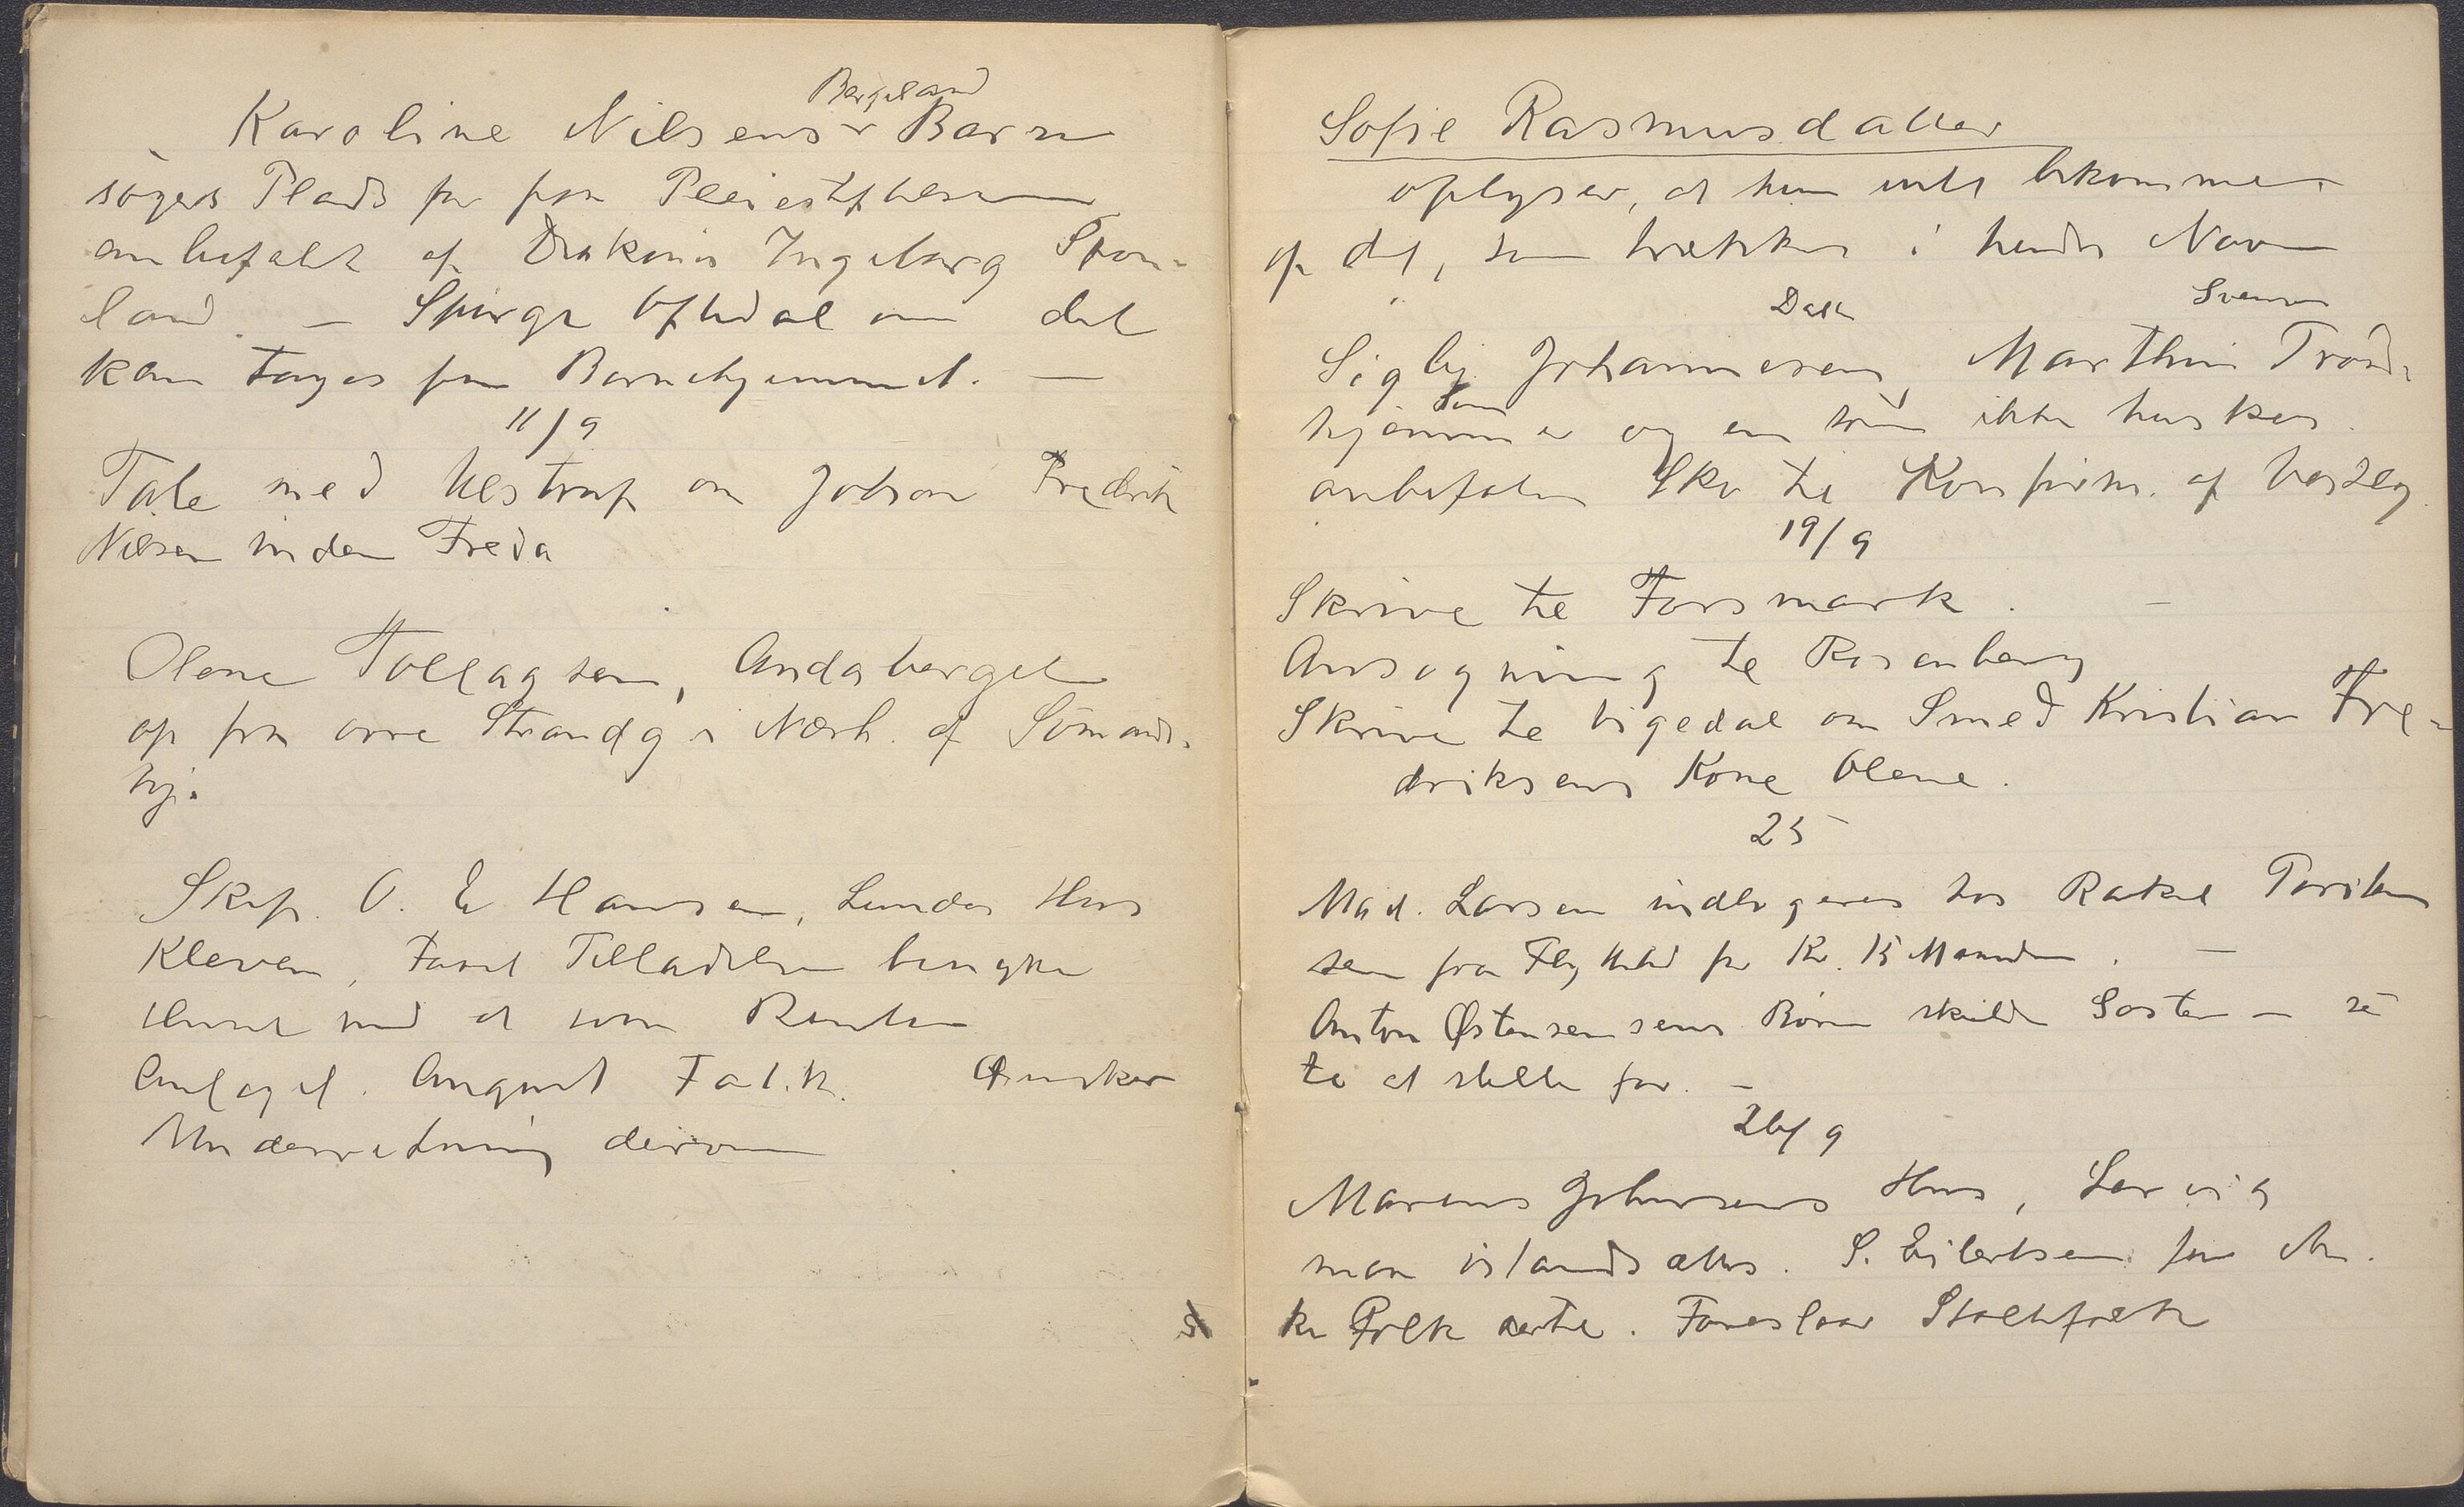 Bergeland
Karoline Nilsens Barn
søges Plads for fra Pleiestiftelsen
anbefalt af Diakonis Ingeborg Spon-
land. – Spørge Oftedal om det
kan tages fra Barnehjemmet. –
11/9
Tale med Ulstrup om Johan Fredrik
Nilsen inden Freda
Olene Tollagsen, Andaberget
op fra øvre Strandg i Nærh. af Sømands-
hj.
Skip. O. E Hansen, Lundes Hus
Kleven, Faaet Tilladelse benytte
Huset med at som Renter
Anlaget. August Falk. Ønsker
Underretning derom
Sofie Rasmusdatter
oplyser, at hun intet bekommer
af det, som trækkes i hendes Navn
Datt Svensen
Sigby Johannesen, Marthin Trond-
hjemmer og en som ikke huskes
Søn
anbefales Sko til Konfirm. af
19/9
Skrive til Forsmark. –
Ansøgning til Rosenberg
Skrive til Vigedal om Smed Kristian Fre-
driksens Kone Olene.
25
Mad. Larsen indlogeres hos Rakel
sen fra Flyttetid for Kr. 15 Maaneden. –
Anton Østensensens Børn skulde – se
til at stelle for. –
26/9
Marens Johnsens Hus, Lervig
maa istandsættes. S. Eilertsen
Folk dertil. Foreslaar